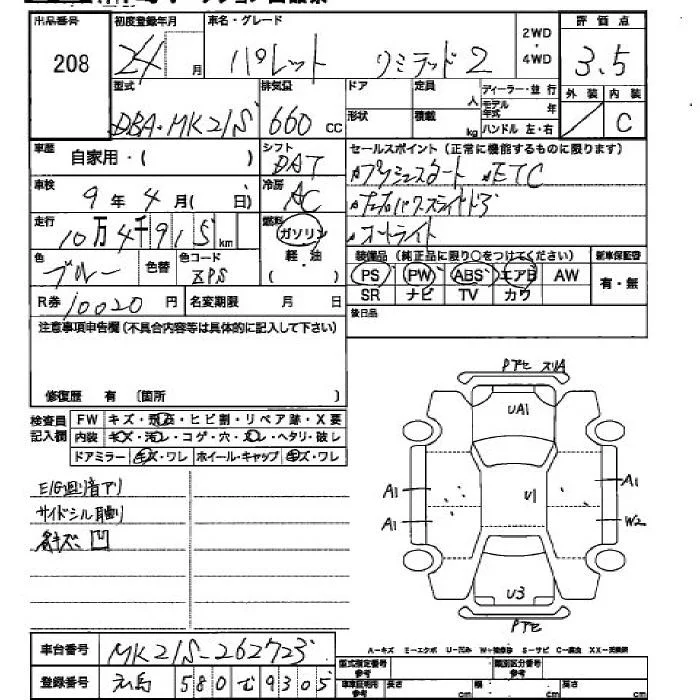 出品番号
208
初度登録年月
24 月
車名・グレード
パレット リミテッド2
2WD
・
4WD
評価点
3.5
外装 内装
C
型式
DBA・MK21S
排気量
660 cc
ドア
形状
定員 人
積載 kg
ディーラー・並行
モデル年式 年
ハンドル 左・右
車歴
自家用・( )
シフト
DAT
車検
9年4月( )
冷房
AC
走行
10万4千915km
燃料
ガソリン
軽・油
( )
色
ブルー
色替
色コード
ZPS
R券 10020円
名変期限 月 日
セールスポイント(正常に機能するものに限ります)
プッシュスタート ETC
オートライト
装備品(純正品に限り○をつけてください)
新車保証書
PS PW ABS エアB AW
SR ナビ TV カワ
有・無
後日品
注意事項申告欄(不具合内容等は具体的に記入して下さい)
修復歴 有 〔箇所 〕
検査員
記入欄
FW キズ・飛石・ヒビ割・リペア跡・X要
内装 キズ・汚レ・コゲ・穴・スレ・ヘタリ・破レ
ドアミラー キズ・ワレ ホイール・キャップ キズ・ワレ
E/G廻り音アリ
サイドシル腐り
凹
Pアセ スリA
UA1
A1
A1
U1
A1
W2
U3
Pアセ
車台番号
MK21S-262723
登録番号
580 む 9305
A－キズ E－エクボ U－凹み W－補修跡 S－サビ C－腐食 XX－交換済
型式指定番号
参考
類別区分番号
参考
車庫証明用
参考
長さ cm
幅 cm
高さ cm